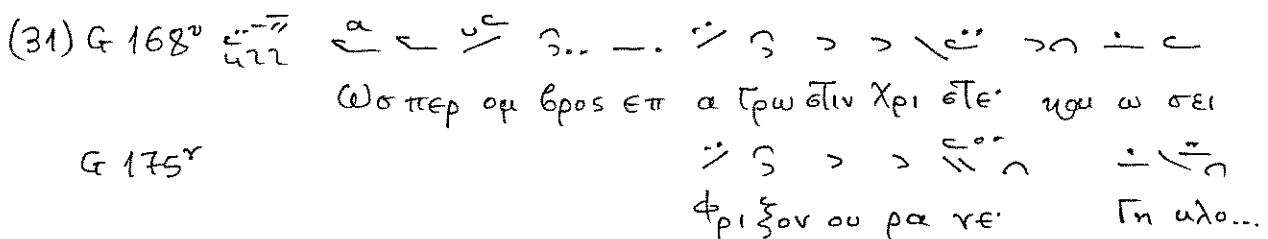 (31) G 168ᵛ
Ωσ περ ομ βρος επ α γρω στιν Χρι στε· και ω σει
G 175ʳ
Φρι ξον ου ρα νε· Γη κλο...